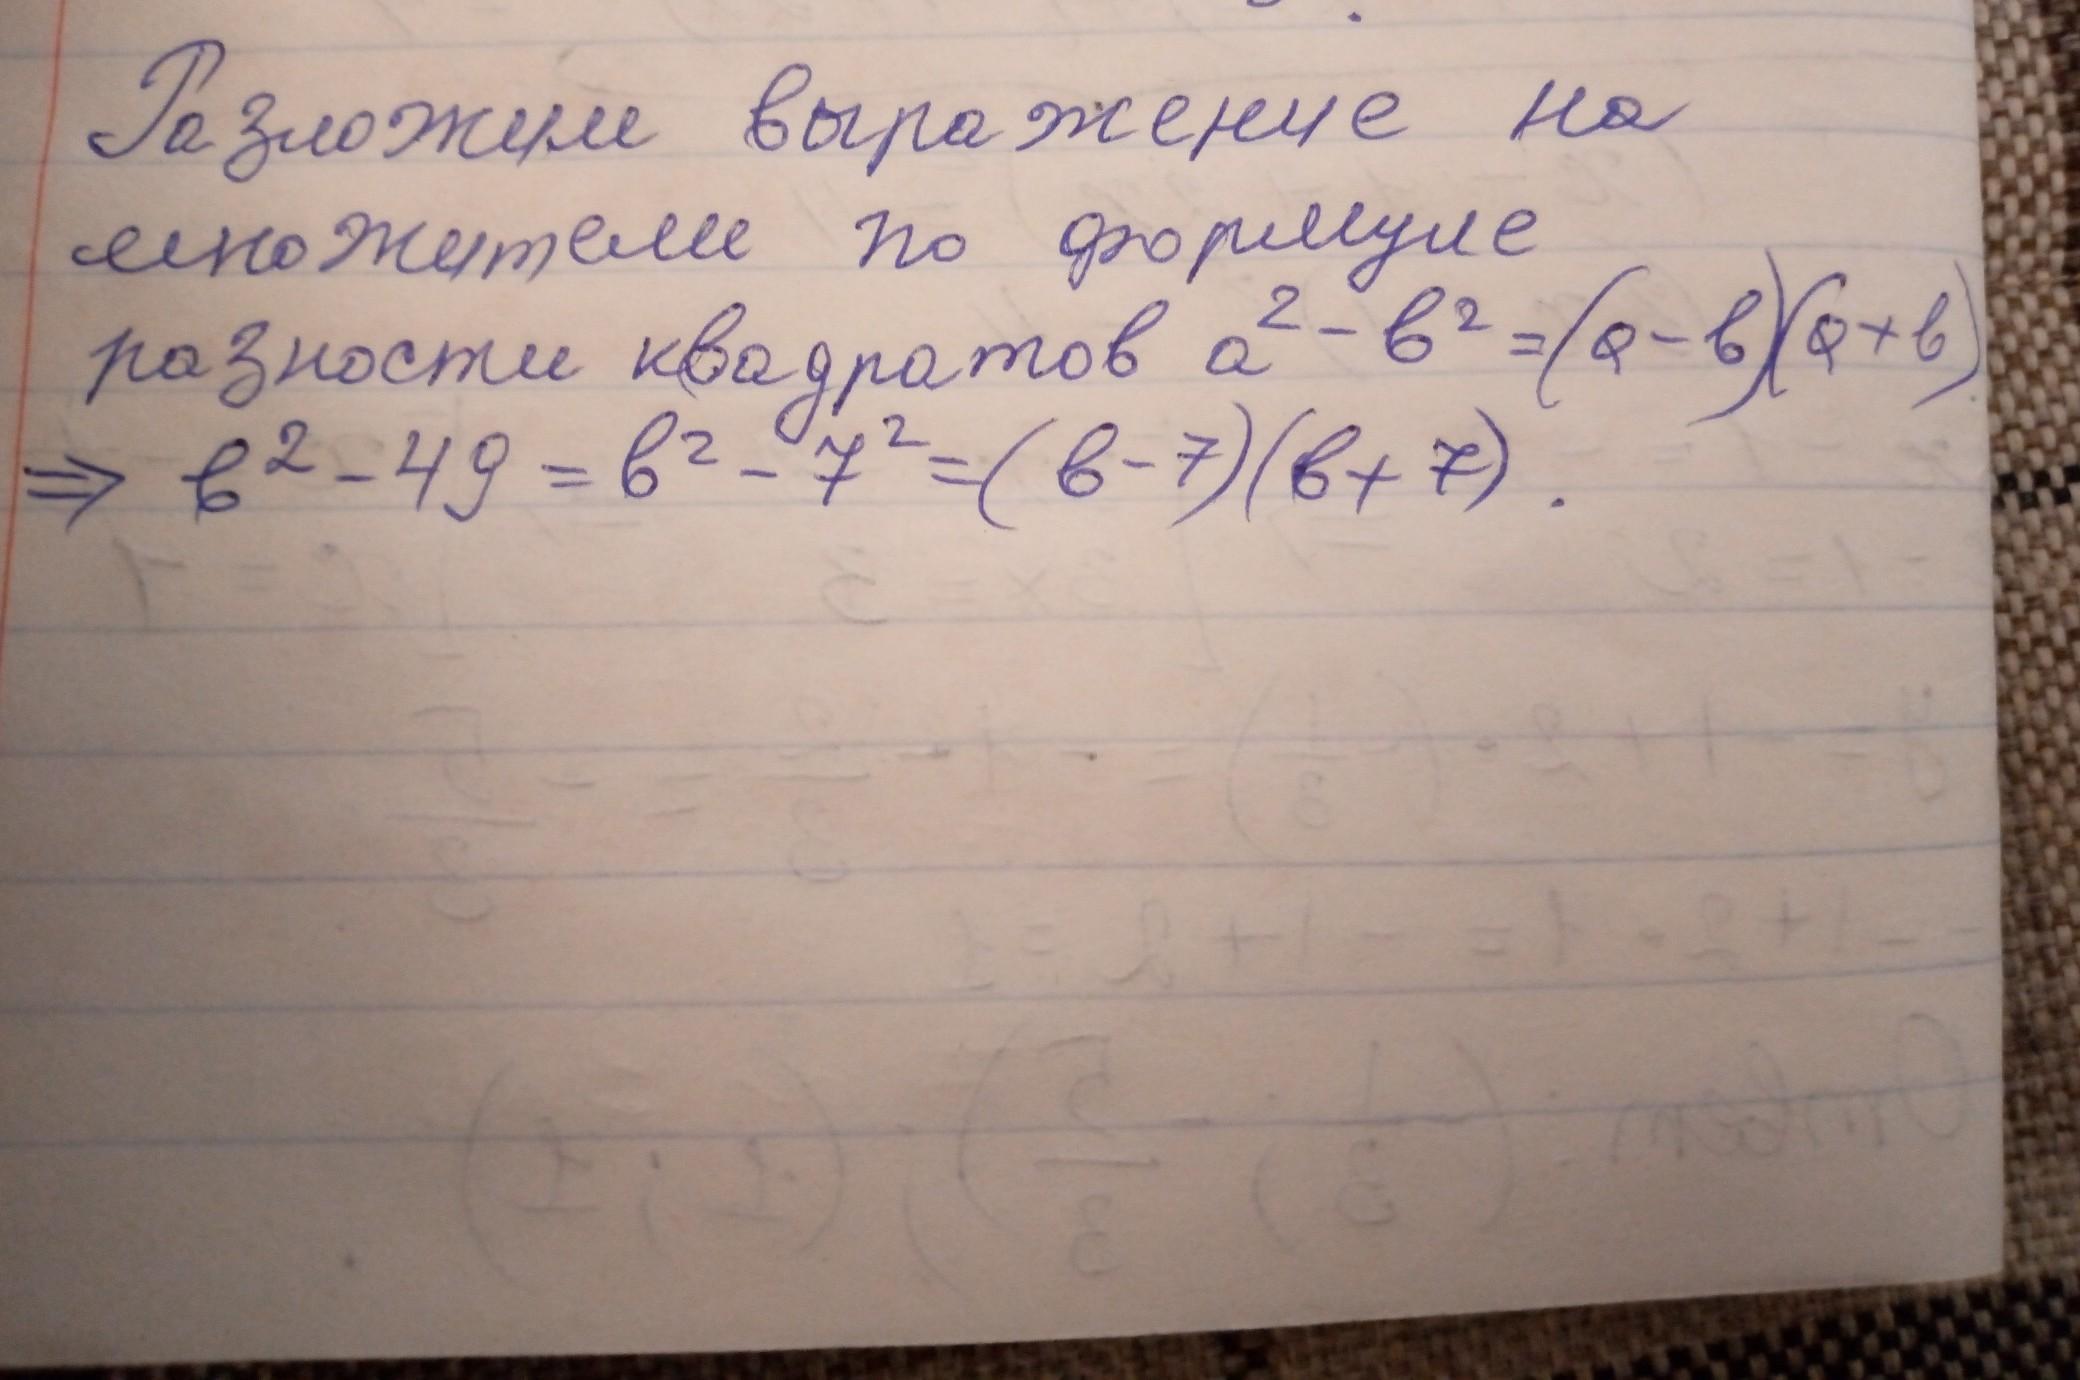 Разложим выражение на
множители по формуле
разности квадратов a² - b² = (a - b)(a + b)
⇒ b² - 49 = b² - 7² = (b - 7)(b + 7).